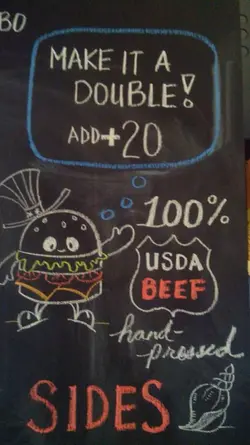 BO
MAKE IT A
DOUBLE!
ADD+20
100%
USDA
BEEF
hand-
pressed
SIDES